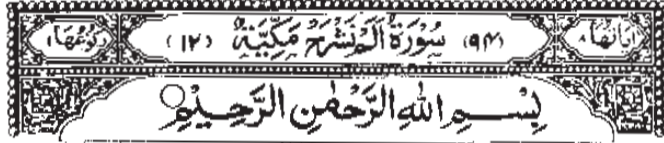 اٰيَاتُهَا ۸ (۹۴) سُوْرَةُ اَلَمْ نَشْرَحْ مَكِّيَّةٌ (۱۲) رُكُوْعُهَا ۱
بِسْمِ اللهِ الرَّحْمٰنِ الرَّحِيْمِ